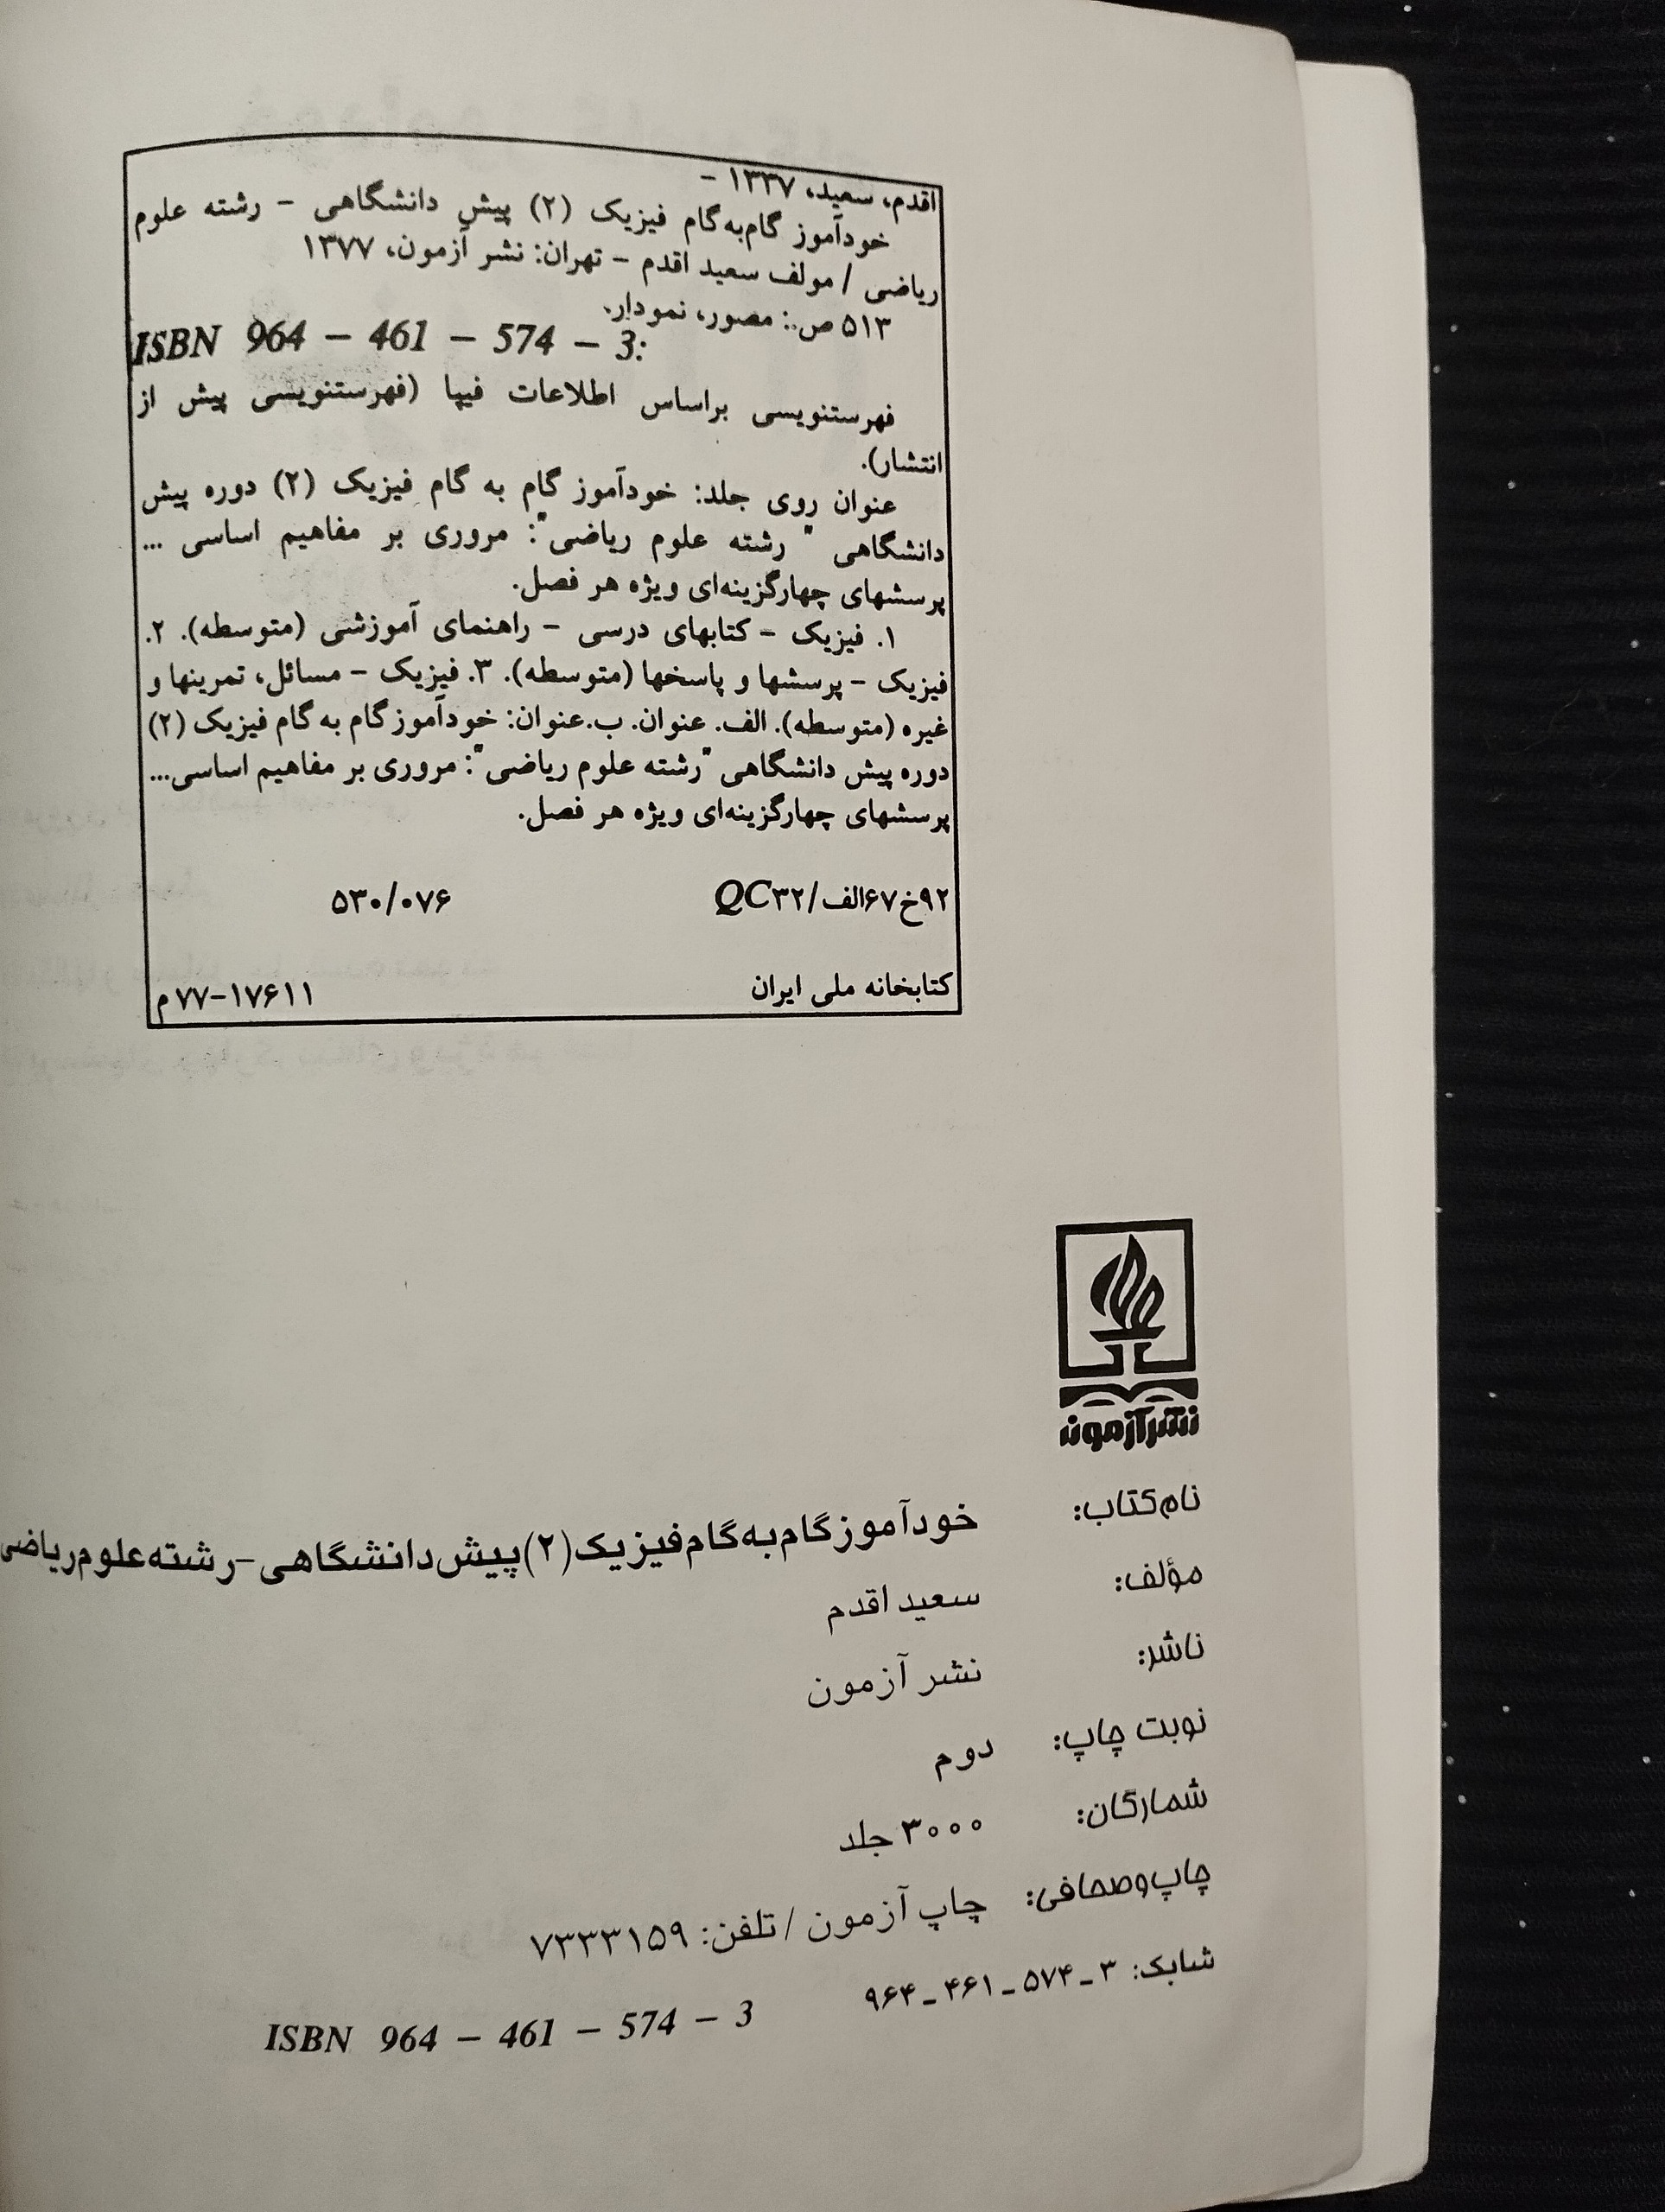 اقدم، سعید، ۱۳۳۷ -
خودآموز گام‌به‌گام فیزیک (۲) پیش دانشگاهی - رشته علوم
ریاضی / مولف سعید اقدم - تهران: نشر آزمون، ۱۳۷۷
۵۱۳ ص.: مصور، نمودار.
ISBN 964 - 461 - 574 - 3:
فهرستنویسی براساس اطلاعات فیپا (فهرستنویسی پیش از
انتشار).
عنوان روی جلد: خودآموز گام به گام فیزیک (۲) دوره پیش
دانشگاهی " رشته علوم ریاضی": مروری بر مفاهیم اساسی ...
پرسشهای چهارگزینه‌ای ویژه هر فصل.
۱. فیزیک - کتابهای درسی - راهنمای آموزشی (متوسطه). ۲.
فیزیک - پرسشها و پاسخها (متوسطه). ۳. فیزیک - مسائل، تمرینها و
غیره (متوسطه). الف. عنوان. ب.عنوان: خودآموز گام به گام فیزیک (۲)
دوره پیش دانشگاهی "رشته علوم ریاضی": مروری بر مفاهیم اساسی...
پرسشهای چهارگزینه‌ای ویژه هر فصل.
۹۲خ۶۷الف/QC۳۲ ۵۳۰/۰۷۶
کتابخانه ملی ایران ۷۷-۱۷۶۱۱م
نشر آزمون
نام‌کتاب: خودآموز گام‌به‌گام فیزیک (۲) پیش دانشگاهی - رشته علوم ریاضی
مؤلف: سعید اقدم
ناشر: نشر آزمون
نوبت چاپ: دوم
شمارگان: ۳۰۰۰ جلد
چاپ‌وصحافی: چاپ آزمون / تلفن: ۷۳۳۳۱۵۹
شابک: ۳ - ۵۷۴ - ۴۶۱ - ۹۶۴ ISBN 964 - 461 - 574 - 3